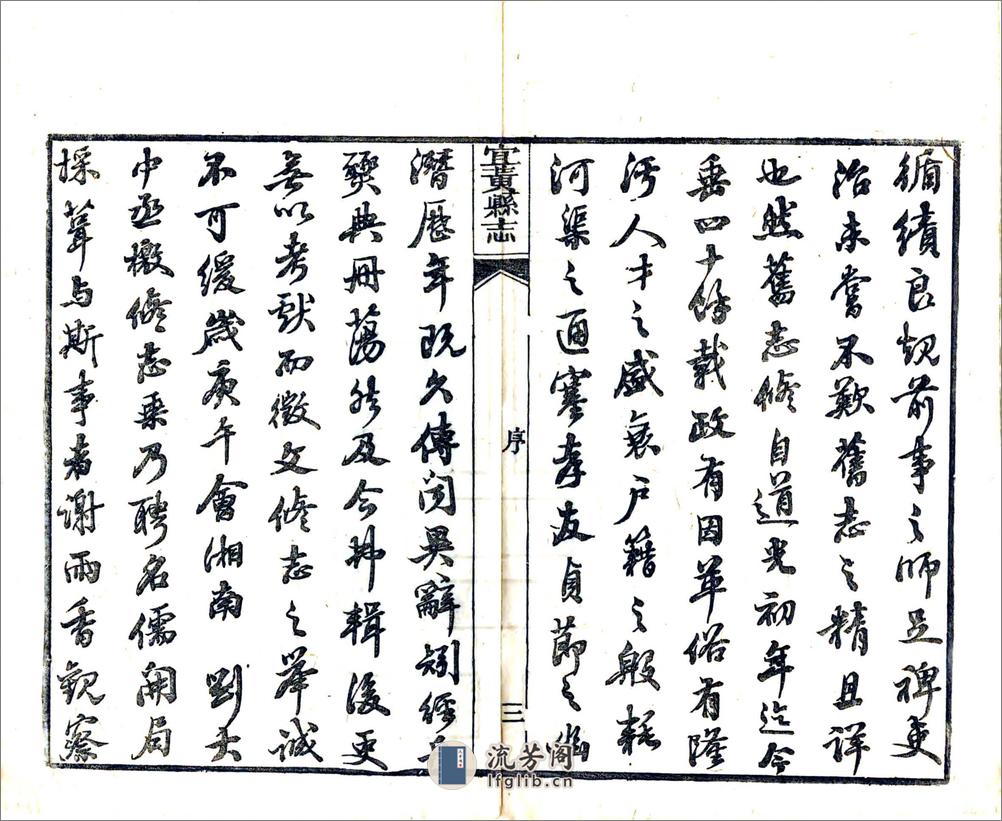 循績良規前事之師足裨吏
治未嘗不歎舊志之精且詳
也然舊志修自道光初年迄今
垂四十餘載政有因革俗有隆
污人才之盛衰戶籍之殷耗
河渠之通塞孝友貞節之幽
宜黃縣志
序
三
潛歷年既久傳聞異辭矧經
燹典冊蕩然及今弗輯後更
無以考獻而徵文修志之舉誠
不可緩歲庚午會湘南劉大
中丞檄修志乘乃聘名儒開局
採葺与斯事者謝雨香觀察
流芳阁
lfglib.cn